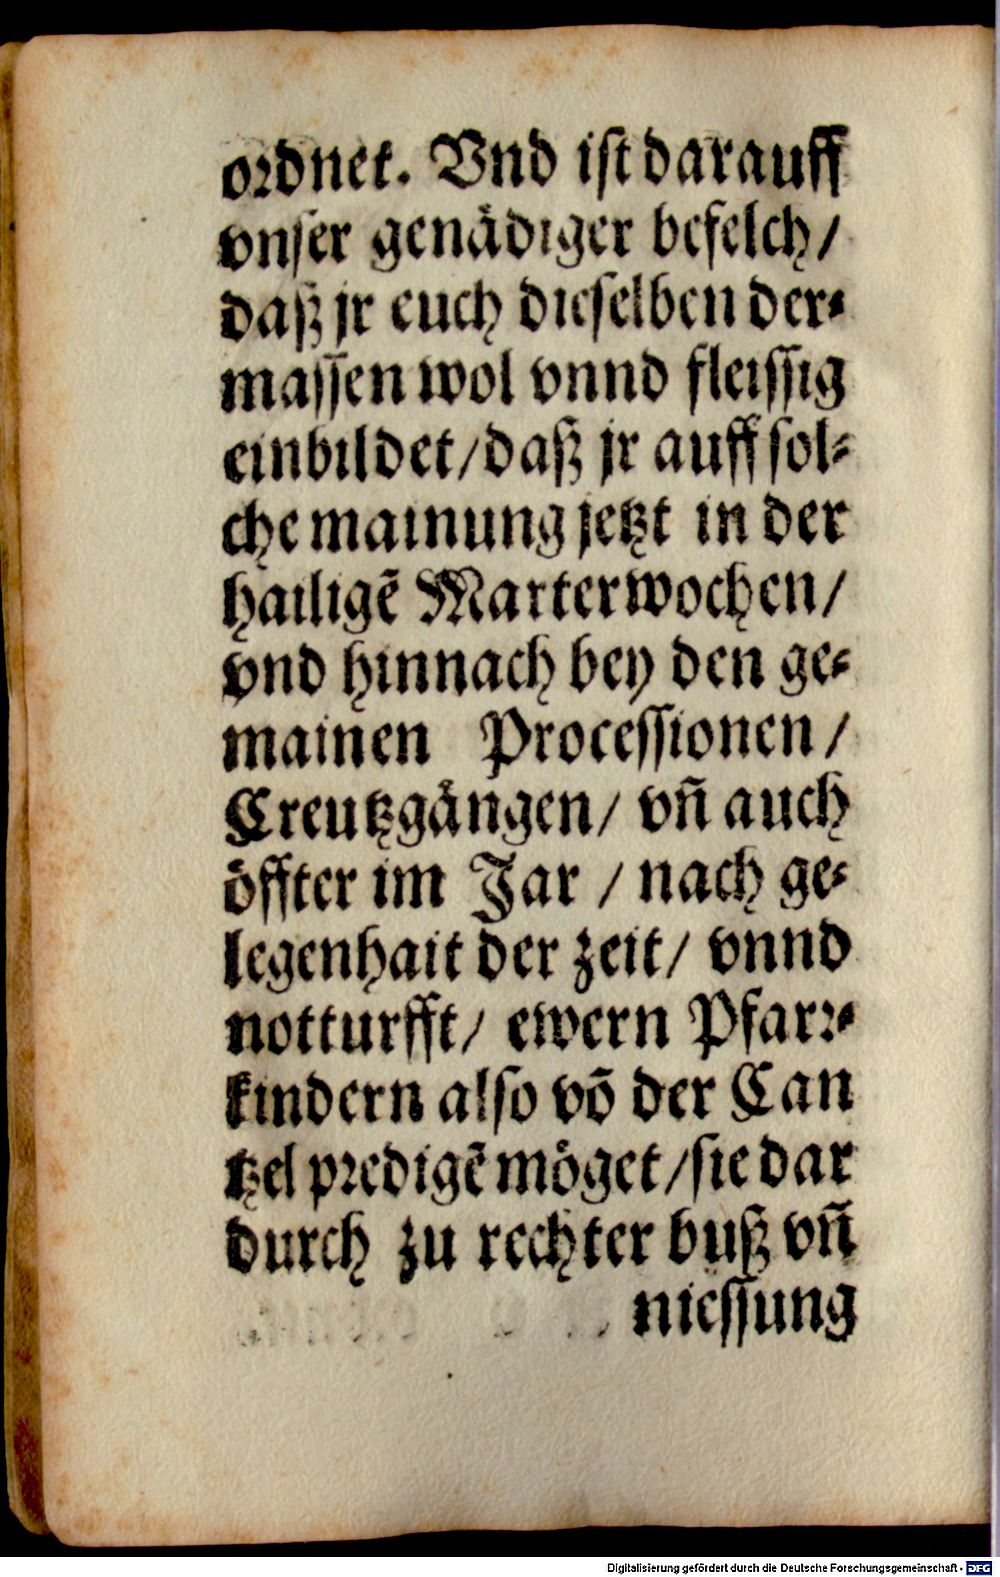 ordnet. Vnd ist darauff
vnser genådiger befelch/
daß jr euch dieselben der⸗
massen wol vnnd fleissig
einbildet/daß jr auff sol⸗
che mainung jetzt in der
hailigẽ Marterwochen/
vnd hinnach bey den ge⸗
mainen Processionen/
Creutzgången/ vñ auch
öffter im Jar / nach ge⸗
legenhait der zeit/ vnnd
notturfft/ ewern Pfarr⸗
kindern also võ der Can
tzel predigẽ möget/sie dar
durch zu rechter buß vñ
niessung
Digitalisierung gefördert durch die Deutsche Forschungsgemeinschaft - DFG